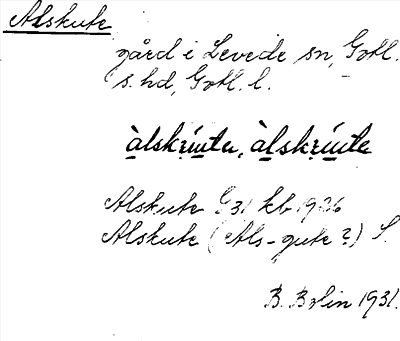 Alskute
gård i Levede sn, Gotl.
s. hd, Gotl. l.
àlskrùte, àlskrùte
Alskute G 31 kb 1926
Alskute (Als-gute?) S.
B. Bolin 1931.